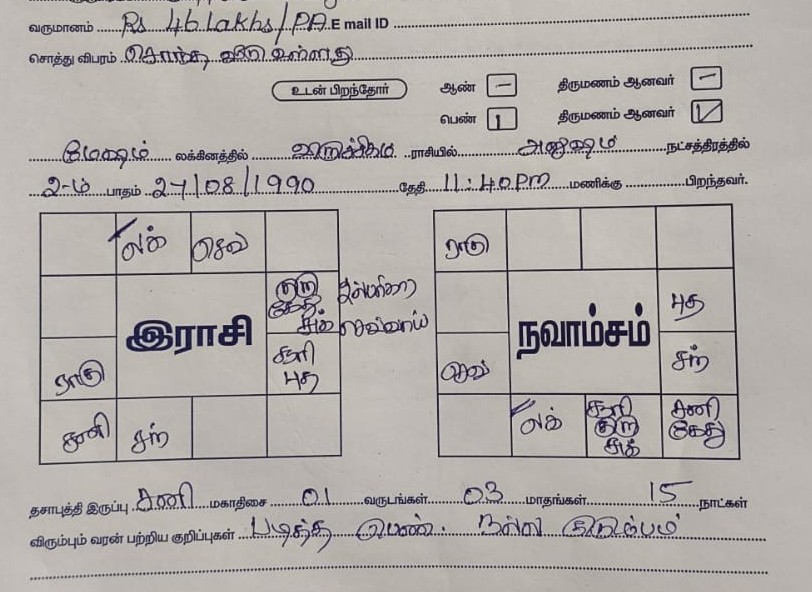 வருமானம் Rs 46 Lakhs/PA. E mail ID
சொத்து விபரம் சொந்த வீடு உள்ளது
உடன் பிறந்தோர் ஆண் – திருமணம் ஆனவர் –
பெண் 1 திருமணம் ஆனவர்
மேஷம் லக்கினத்தில் விருச்சிகம் ராசியில் அனுஷம் நட்சத்திரத்தில்
2-ம் பாதம் 27/08/1990 தேதி 11:40 PM மணிக்கு பிறந்தவர்.
லக் செவ்
குரு கேது சுக்
இராசி
ராகு
சூரி புத
சனி சந்
செவ்வாய்
ராகு
புத
நவாம்சம்
செவ் சந்
லக் சூரி குரு சுக் சனி கேது
தசாபுத்தி இருப்பு சனி மகாதிசை 01 வருடங்கள் 03 மாதங்கள் 15 நாட்கள்
விரும்பும் வரன் பற்றிய குறிப்புகள் படித்த பெண். நல்ல குடும்பம்